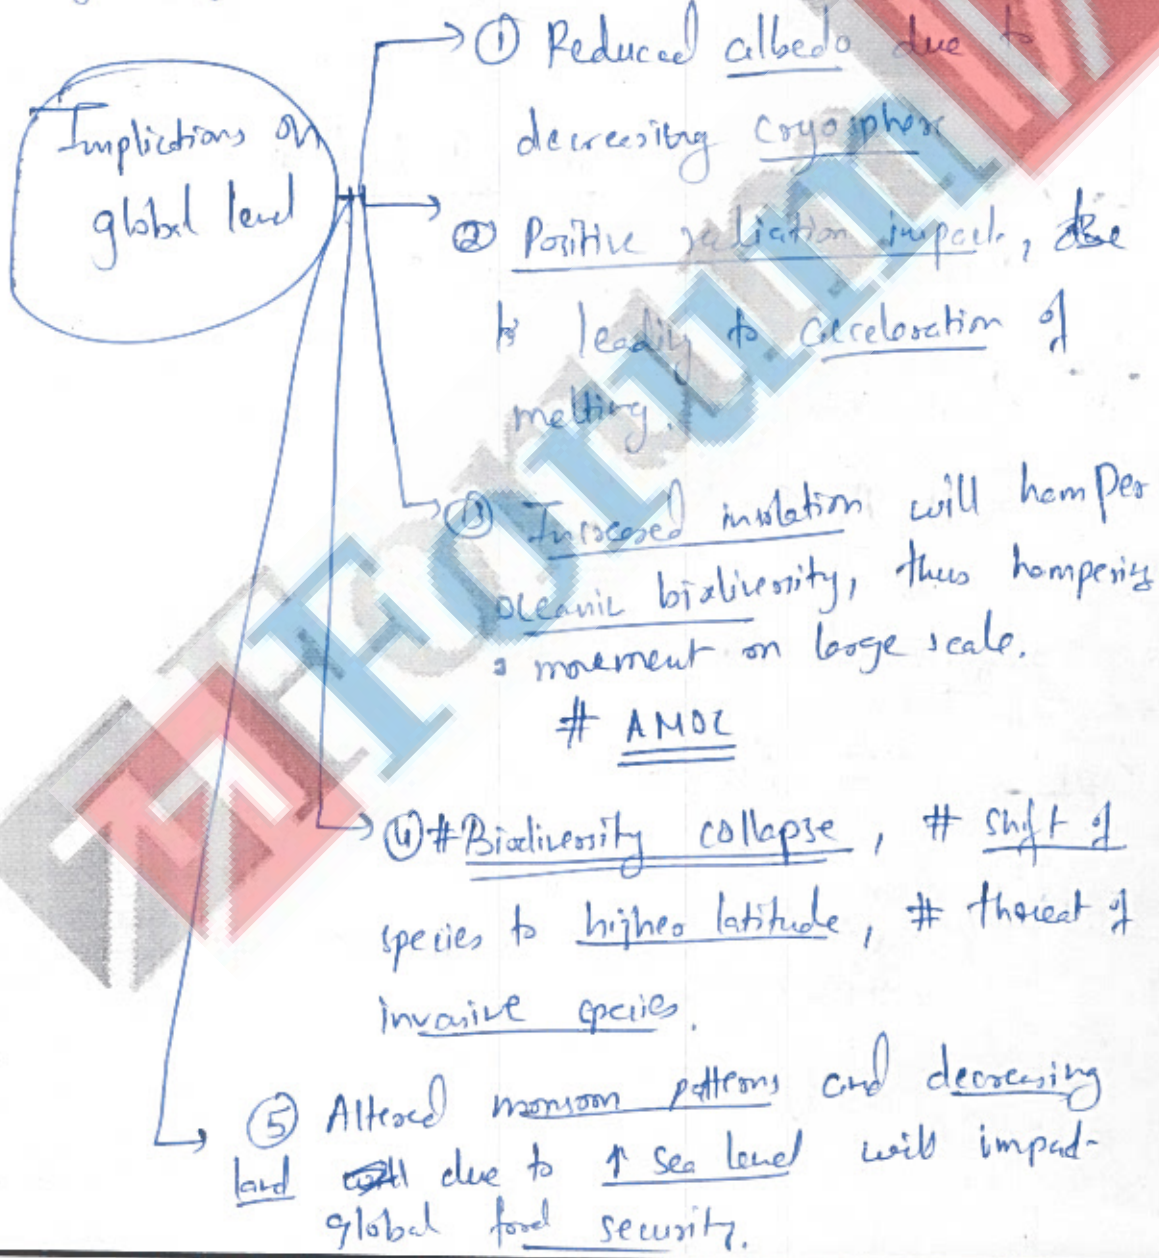 Implictions on
global level
① Reduced albedo due to
decreasing cryosphere
② Positive radiation impact,
to leading to acceleration of
melting.
③ Increased insolation will hamper
oceanic biodiversity, thus hampering
movement on large scale.
# AMOC
④ # Biodiversity collapse, # shift of
species to higher latitude, # threat of
invasive species.
⑤ Altered monsoon patterns and decreasing
land due to ↑ sea level will impact
global food security.
Forum